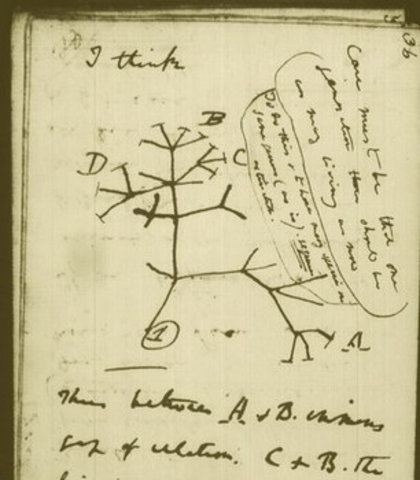 36
I think
Case must be that one
generation then should be
as many living as now
To do this & to have many species in
same genus (as is). requires
extinction.
B
D
C
1
A
Thus between A & B. immense
gap of relation. C & B. the